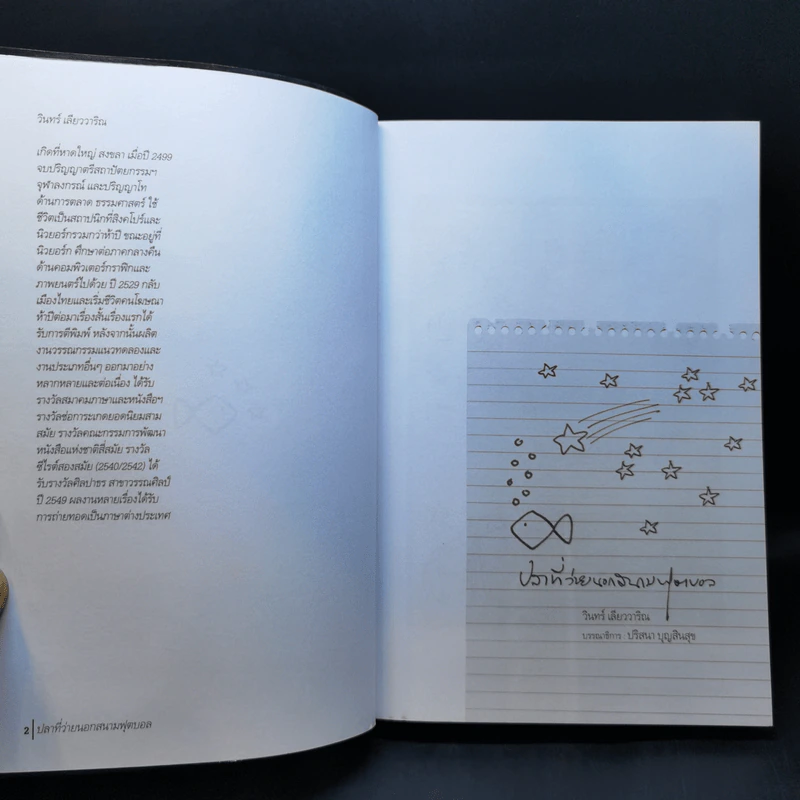 วินทร์ เลียววาริณ
เกิดที่หาดใหญ่ สงขลา เมื่อปี 2499
จบปริญญาตรีสถาปัตยกรรมฯ
จุฬาลงกรณ์ และปริญญาโท
ด้านการตลาด ธรรมศาสตร์ ใช้
ชีวิตเป็นสถาปนิกที่สิงคโปร์และ
นิวยอร์กรวมกว่าห้าปี ขณะอยู่ที่
นิวยอร์ก ศึกษาต่อภาคกลางคืน
ด้านคอมพิวเตอร์กราฟิกและ
ภาพยนตร์ไปด้วย ปี 2529 กลับ
เมืองไทยและเริ่มชีวิตคนโฆษณา
ห้าปีต่อมาเรื่องสั้นเรื่องแรกได้
รับการตีพิมพ์ หลังจากนั้นผลิต
งานวรรณกรรมแนวทดลองและ
งานประเภทอื่นๆ ออกมาอย่าง
หลากหลายและต่อเนื่อง ได้รับ
รางวัลสมาคมภาษาและหนังสือฯ
รางวัลช่อการะเกดยอดนิยมสาม
สมัย รางวัลคณะกรรมการพัฒนา
หนังสือแห่งชาติสี่สมัย รางวัล
ซีไรต์สองสมัย (2540/2542) ได้
รับรางวัลศิลปาธร สาขาวรรณศิลป์
ปี 2549 ผลงานหลายเรื่องได้รับ
การถ่ายทอดเป็นภาษาต่างประเทศ
2 | ปลาที่ว่ายนอกสนามฟุตบอล
ปลาที่ว่ายนอกสนามฟุตบอล
วินทร์ เลียววาริณ
บรรณาธิการ : ปริสนา บุญสินสุข